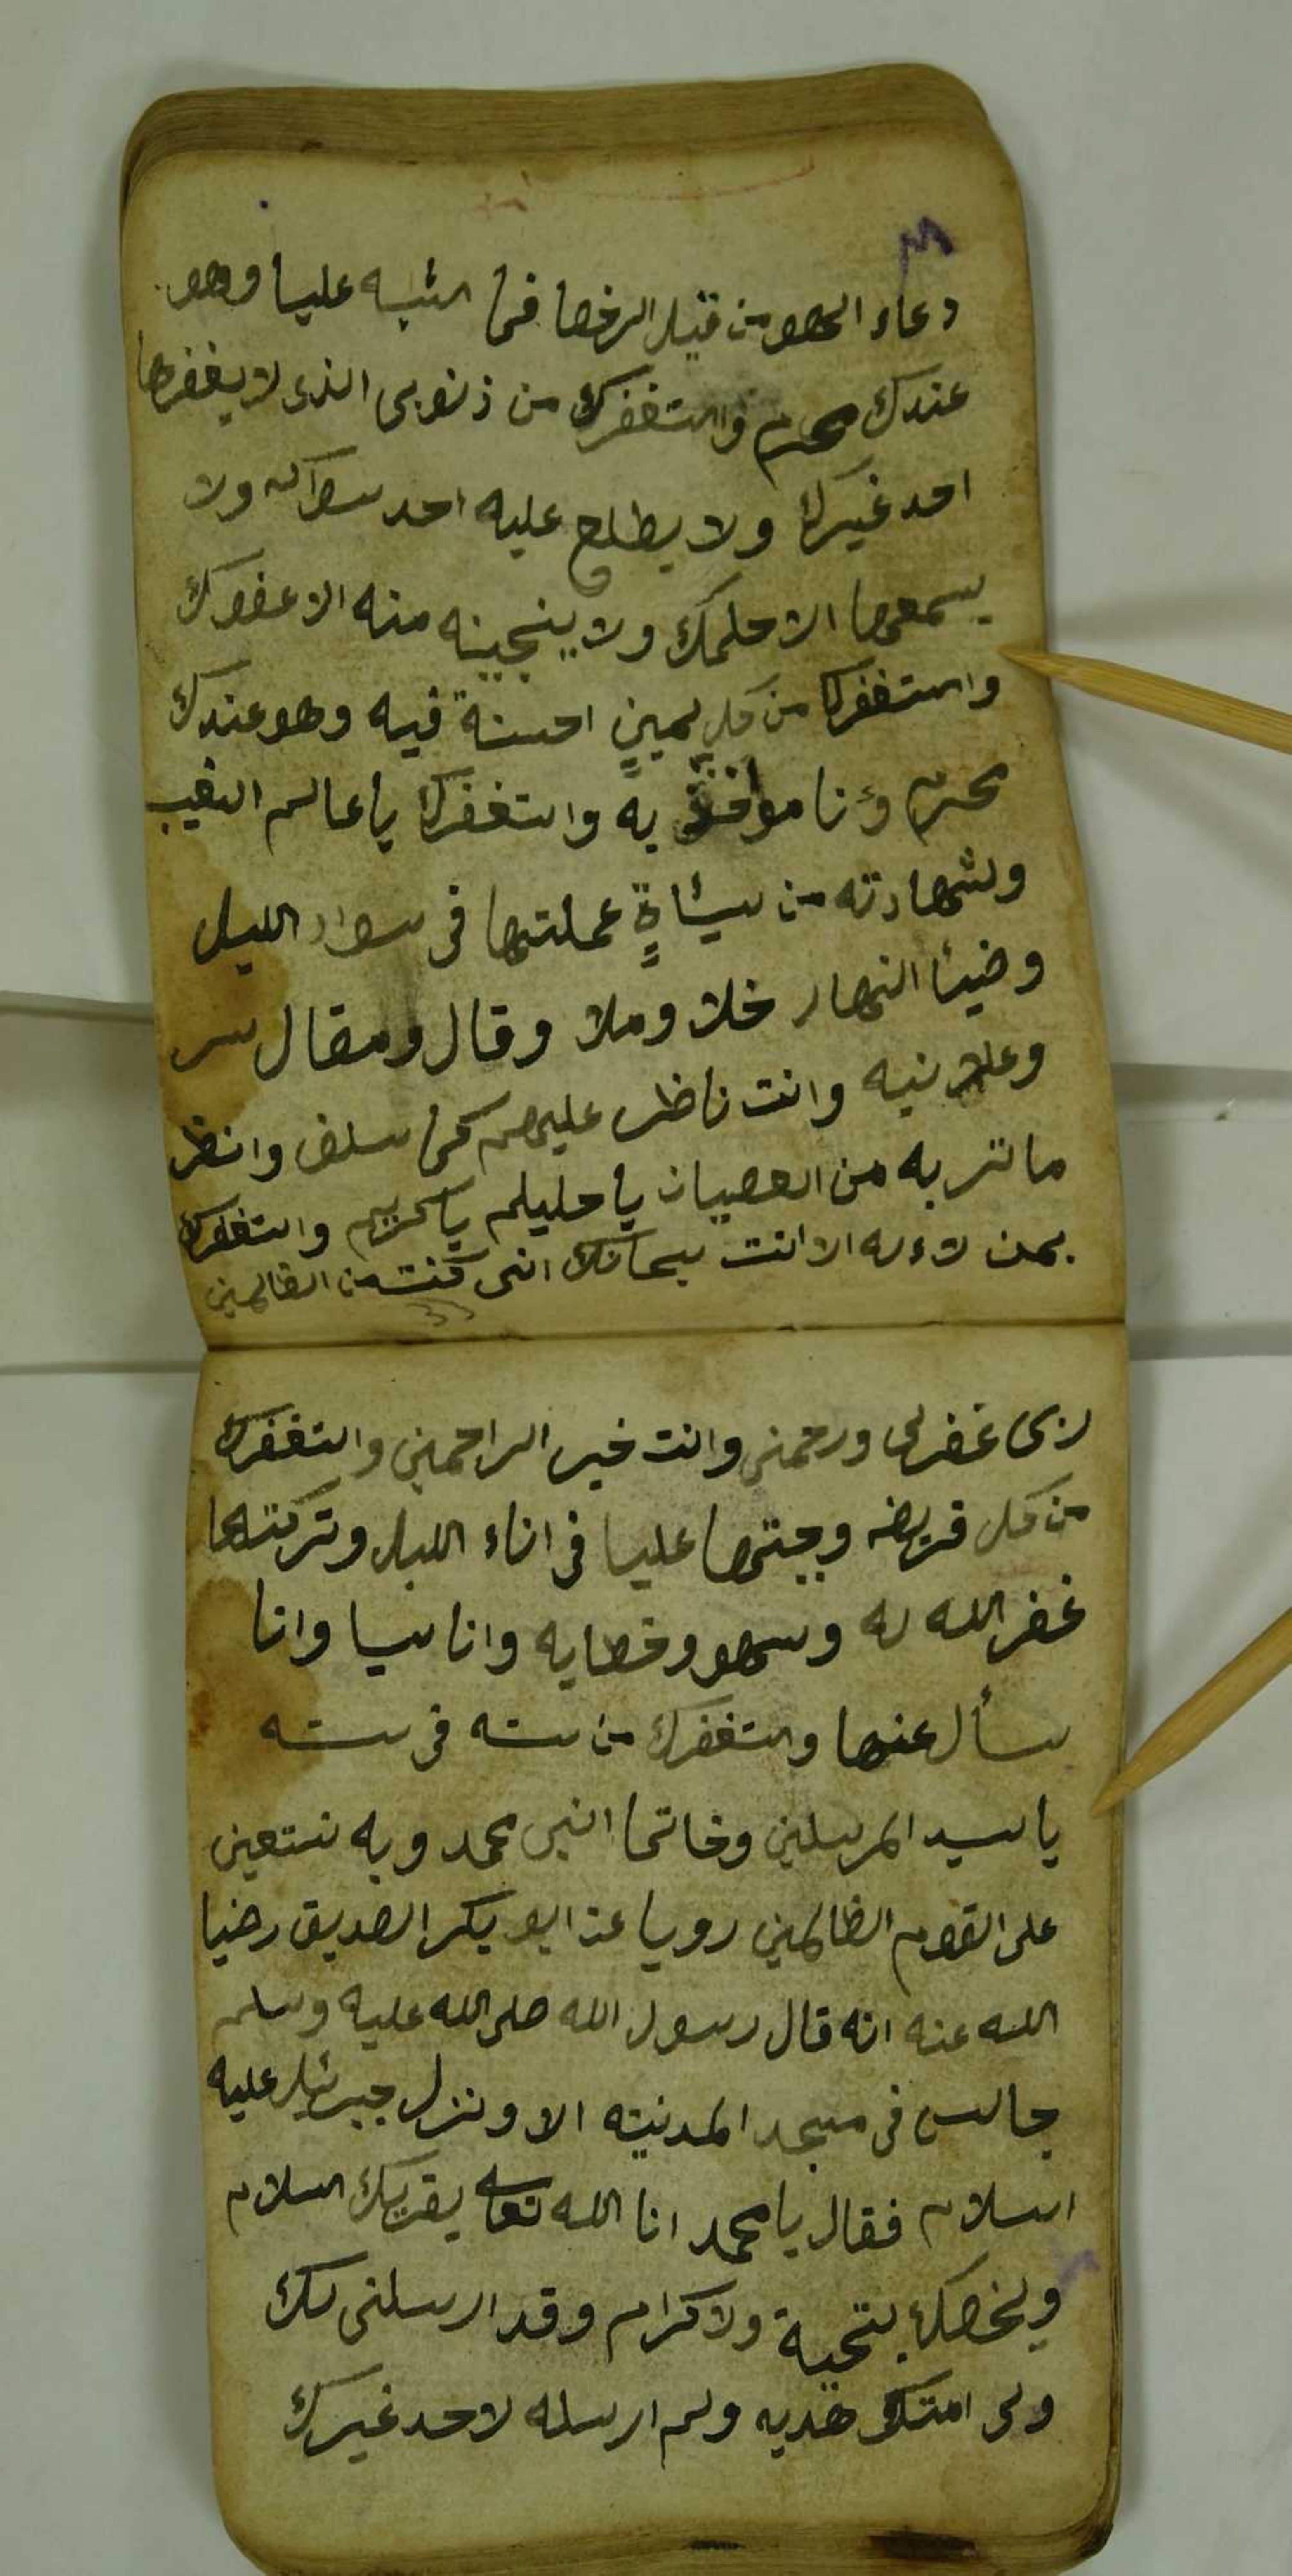 دعاء الهو من قبل الرخصا فما اشبه عليا وهو
عندك محرم واستغفرك من ذنوبى الذى لا يغفرها
احد غيرك ولا يطلع عليه احد سواك ولا
يسمعها الا حلمك ولا ينجينه منه الا عفوك
واستغفرك من كل يمينٍ احسنة فيه وهو عندك
محرم وأنا موافق به واستغفرك يا عالم الغيب
وشهادته من سيئاةٍ عملتها فى سواد الليل
وضيئا النهار خلا وملا وقال ومقال سر
وعلانيه وانت ناظر عليهم كما سلف وانظر
ما تر به من العصيان يا حليلم يا كريم واستغفرك
بمن لا ءله الا انت سبحانك انى كنت من الظالمين
ربى غفرلى ورحمنى وانت خير الراحمين واستغفرك
من كل فريضه وجبتها عليا فى اناء الليل وتركتها
غفر الله له وسهو وخطايه وانا سيا وانا
سأل عنها واستغفرك من سته فى سته
يا سيد المرسلين وخاتما النبى محمد وبه نستعين
على القوم الظالمين رويا عن ابو بكر الصديق رضيا
الله عنه انه قال رسول الله صلى الله عليه وسلم
جالس فى مسجد المدنيته الا ونزل جبرئيل عليه
السلام فقال يا محمد انا الله تعالى يقريك السلام
ويخصك بتحية ولاكرام وقد ارسلنى لك
ولى امتك هديه ولم ارسله لاحد غيرك